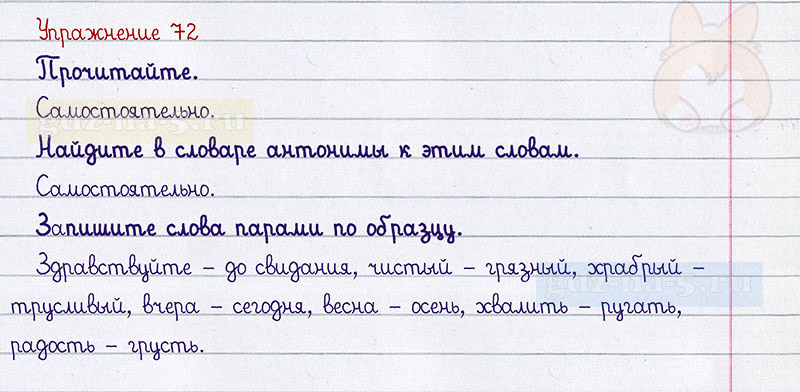 Упражнение 72
Прочитайте.
Самостоятельно.
gdz-na-5.ru
Найдите в словаре антонимы к этим словам.
Самостоятельно.
Запишите слова парами по образцу.
Здравствуйте – до свидания, чистый – грязный, храбрый –
gdz-na-5.ru
трусливый, вчера – сегодня, весна – осень, хвалить – ругать,
радость – грусть.